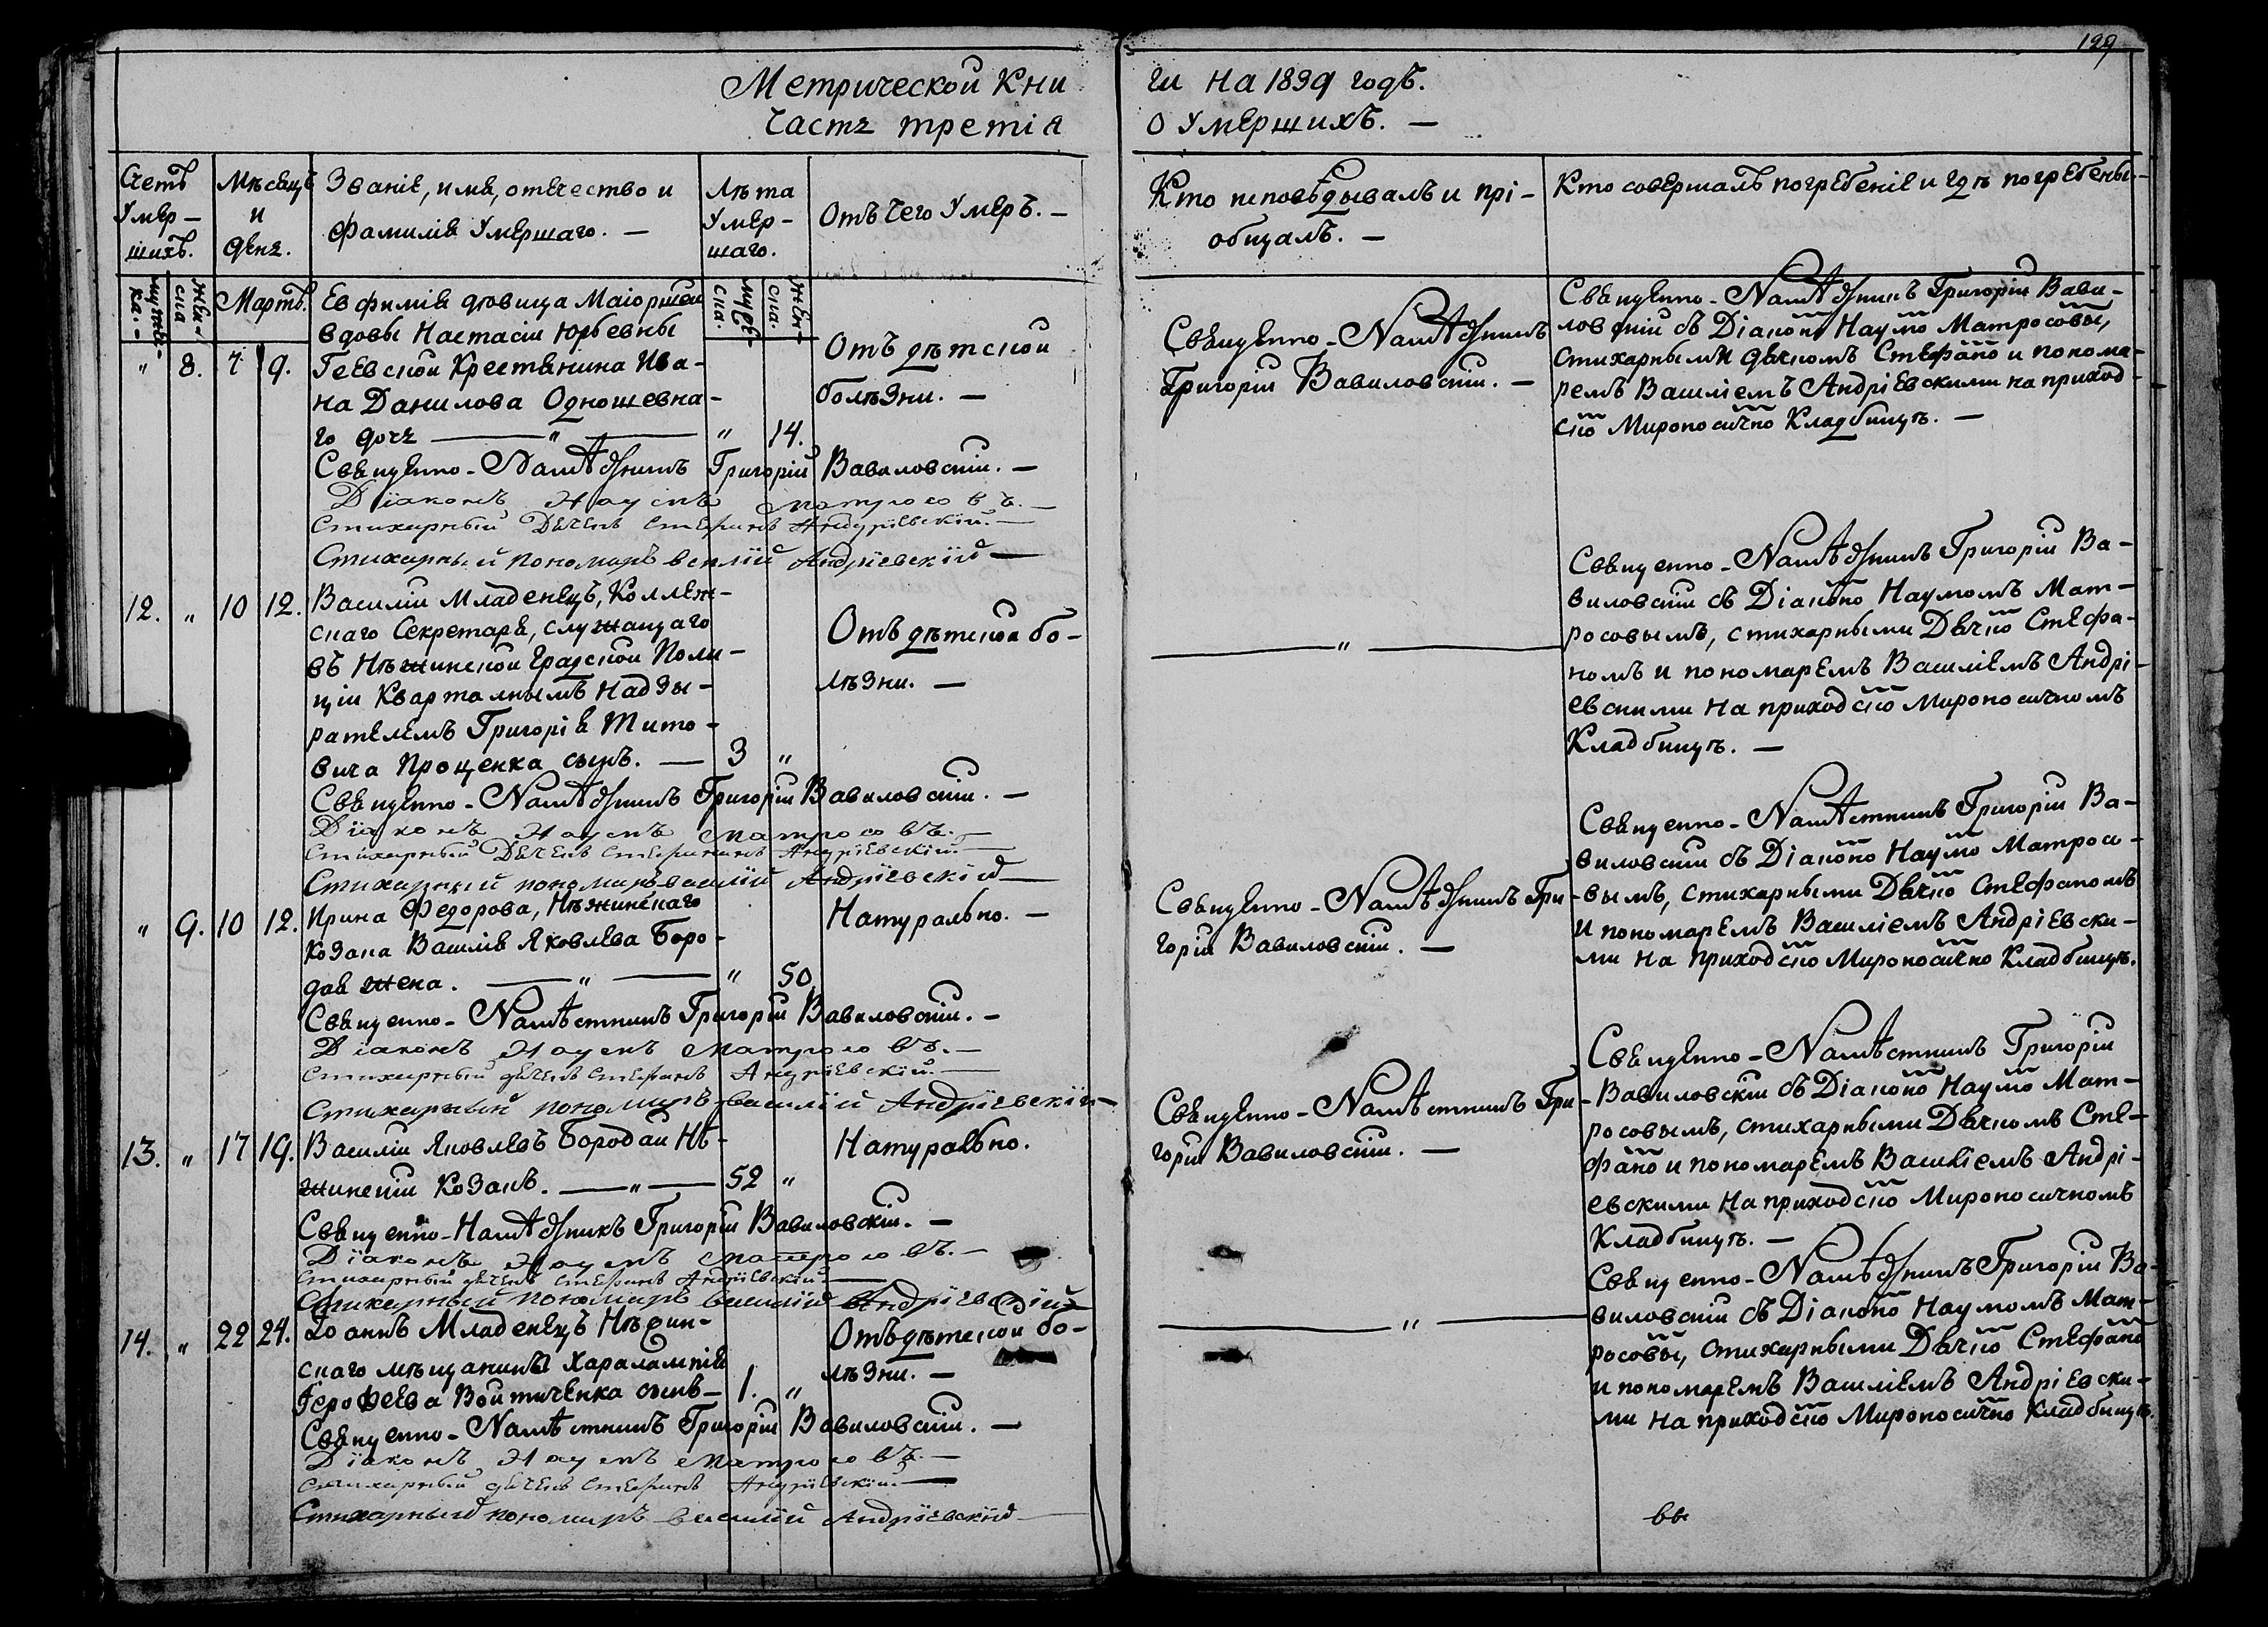 129
Метрической Кни
ги на 1839 годъ.
Часть третія
О Умершихъ. —
Счетъ Умер— шихъ.
Мѣсецъ и день.
Званіе, имя, отечество и
фамилія Умершаго. —
Лѣта Умер— шаго.
Отъ Чего Умеръ. —
Кто исповѣдывалъ и прі—
общалъ. —
Кто совершалъ погребеніе и гдѣ погребены. —
мужес— ка. —
жен— ска
Мартъ.
мужес— ска.
жен— ска.
Евфимія дѣвица Маіорши
вдовы Настасіи Юрьевны
" 8. 7 9. Геевской Крестьянина Ива—
на Данилова Одношевна—
го дочь — " — " 14.
Отъ дѣтской
болѣзни. —
Священно-Намѣстникъ
Григорій Вавиловскій. —
Священно-Намѣстникъ Григорій Вави—
ловскій съ Діаконо Наумо Матросовы,
стихарными дячкомъ Стефано и понома—
ремъ Василіемъ Андріевскими на приход—
ско Мироносично Кладбищѣ. —
Священно-Намѣстникъ Григорій Вавиловскій. —
Діаконъ Наумъ Матросовъ. —
Стихарный Дячекъ Стефанъ Андріевскій. —
Стихарный пономарь Василій Андріевскій —
12. " 10 12. Василій Младенецъ, Коллеж—
скаго Секретаря, служащаго
въ Нѣжинской Градской Поли—
ціи Квартальнымъ Надзы—
рателемъ Григорія Тито—
вича Проценка сынъ. — 3 "
Отъ дѣтской бо—
лѣзни. —
— " —
Священно-Намѣстникъ Григорій Ва—
виловскій съ Діаконо Наумомъ Мат—
росовымъ, стихарными Дячко Стефа—
номъ и пономаремъ Василіемъ Андрі—
евскими на приходско Мироносичномъ
Кладбищѣ. —
Священно-Намѣстникъ Григорій Вавиловскій. —
Діаконъ Наумъ Матросовъ. —
Стихарный Дячекъ Стефанъ Андріевскій. —
Стихарный пономарь Василій Андріевскій —
" 9. 10 12. Ирина Федорова, Нѣжинскаго
Козака Василія Яковлева Боро—
дая жена. — " — " 50
Натурально. —
Священно-Намѣстникъ Гри—
горій Вавиловскій. —
Священно-Намѣстникъ Григорій Ва—
виловскій съ Діаконо Наумо Матросо—
вымъ, стихарными Дячко Стефаномъ
и пономаремъ Василіемъ Андріевски—
ми на приходско Мироносично Кладбищѣ.
Священно-Намѣстникъ Григорій Вавиловскій. —
Діаконъ Наумъ Матросовъ. —
Стихарный дячекъ Стефанъ Андріевскій. —
Стихарный пономарь Василій Андріевскій —
13. " 17 19. Василій Яковлевъ Бородай Нѣ—
жинскій Козакъ. — " — 52 "
Натурально.
Священно-Намѣстникъ Гри—
горій Вавиловскій. —
Священно-Намѣстникъ Григорій
Вавиловскій съ Діаконо Наумо Мат—
росовымъ, стихарными Дячкомъ Сте—
фано и пономаремъ Василіемъ Андрі—
евскими на приходско Мироносичномъ
Кладбищѣ. —
Священно-Намѣстникъ Григорій Вавиловскій. —
Діаконъ Наумъ Матросовъ. —
Стихарный дячекъ Стефанъ Андріевскій —
Стихарный пономарь Василій Андріевскій
14. " 22 24. Іоаннъ Младенецъ Нѣжин—
скаго мѣщанина Харалампія
Герофеева Войтиченка сынъ — 1. "
Отъ дѣтской бо—
лѣзни. —
— " —
Священно-Намѣстникъ Григорій Ва—
виловскій съ Діаконо Наумомъ Мат—
росовы, стихарными Дячко Стефано
и пономаремъ Василіемъ Андріевски—
ми на приходско Мироносично Кладбищѣ.
Священно-Намѣстникъ Григорій Вавиловскій. —
Діаконъ Наумъ Матросовъ. —
Стихарный дячекъ Стефанъ Андріевскій. —
Стихарный пономарь Василій Андріевскій —